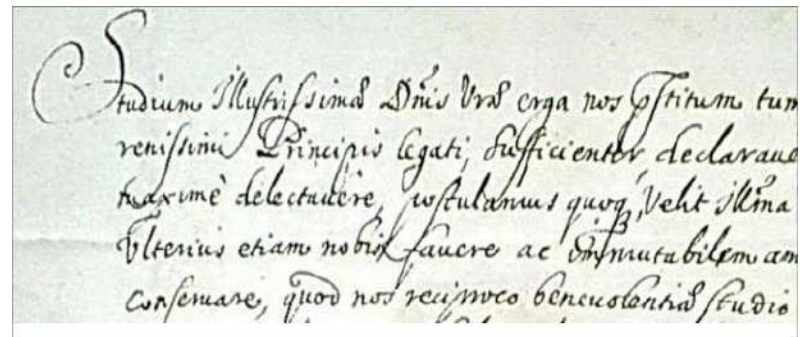 Studium Illustrissimæ Dñis Vræ erga nos p̃stitum tum
renissimi Principis legati, sufficienter declarave
maximè delectavêre, postulamus quoq, Velit Illma
Vlterius etiam nobis favere ac immutabilem am
conservare, quod nos reciproco benevolentiæ studio